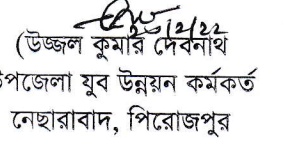 ২০/২/২২
(উজ্জল কুমার দেবনাথ
উপজেলা যুব উন্নয়ন কর্মকর্ত
নেছারাবাদ, পিরোজপুর